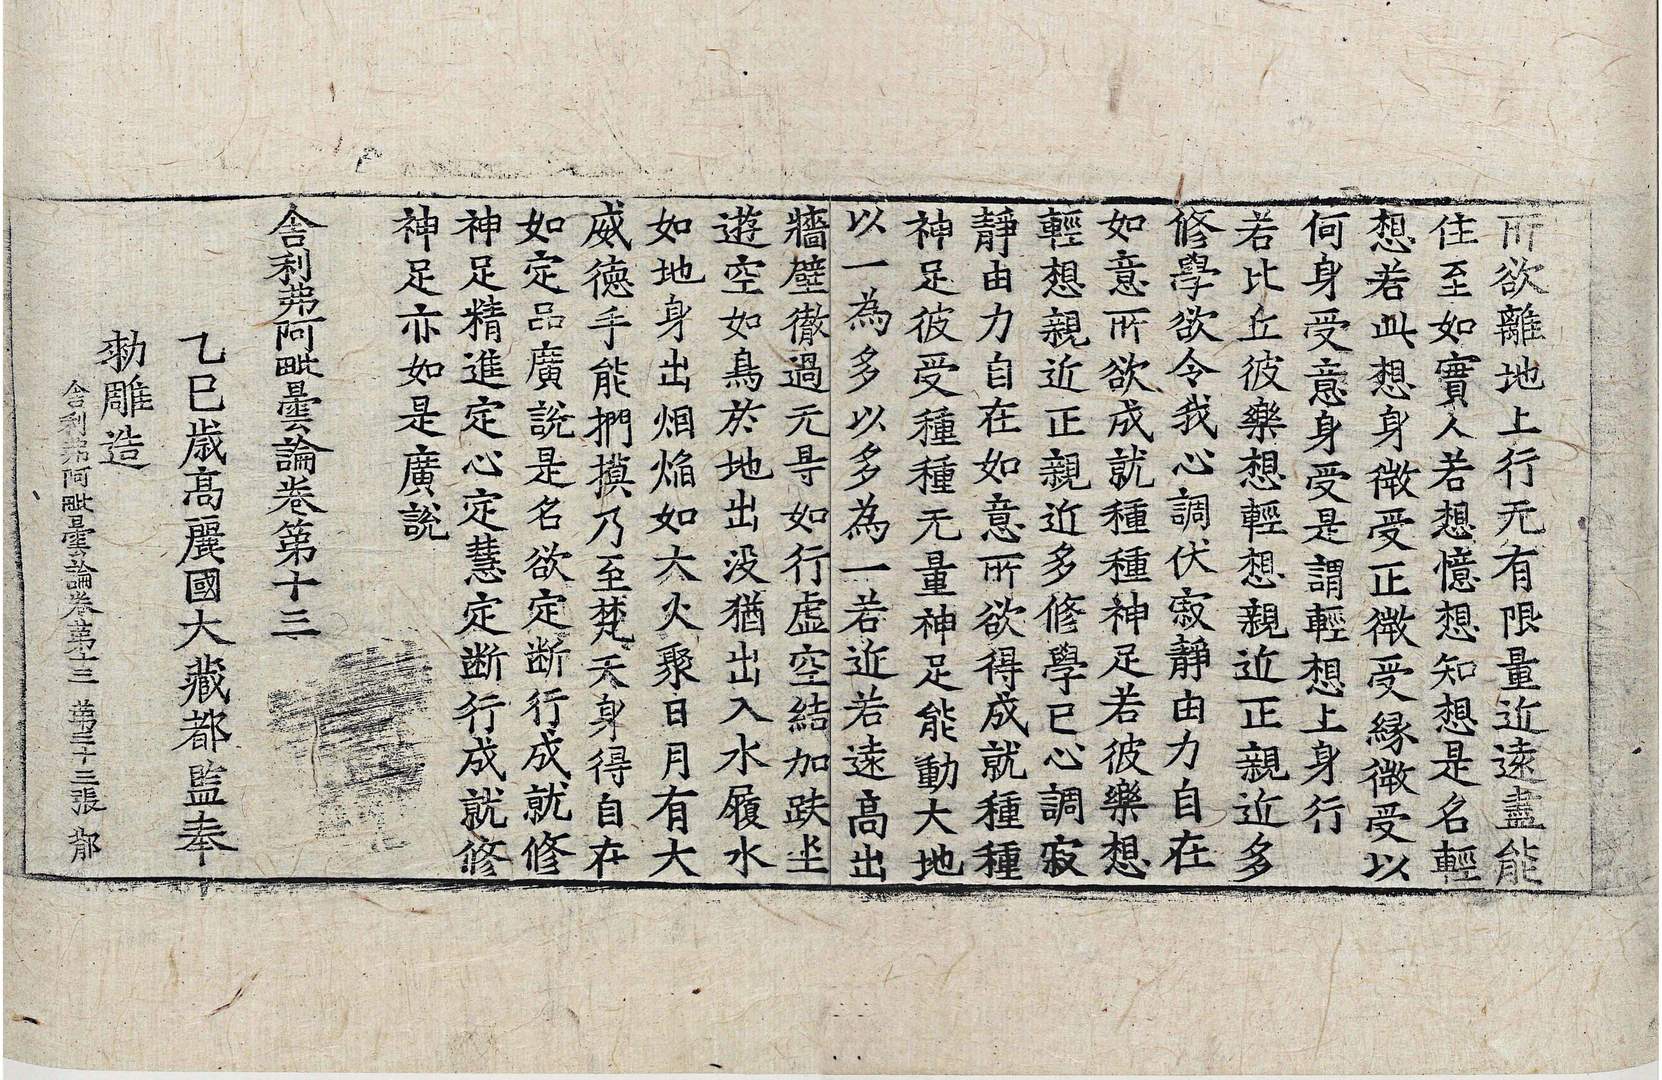 所欲離地上行无有限量近遠盡能
住至如實人若想憶想知想是名輕
想若此想身微受正微受緣微受以
何身受意身受是謂輕想上身行
若比丘彼樂想輕想親近正親近多
修學欲令我心調伏寂靜由力自在
如意所欲成就種種神足若彼樂想
輕想親近正親近多修學已心調寂
靜由力自在如意所欲得成就種種
神足彼受種種无量神足能動大地
以一為多以多為一若近若遠高出
牆壁徹過无㝵如行虛空結加趺坐
遊空如鳥於地出没猶出入水履水
如地身出烟焰如大火聚日月有大
威德手能捫摸乃至梵天身得自在
如定品廣說是名欲定断行成就修
神足精進定心定慧定断行成就修
神足亦如是廣說
舍利弗阿毗曇論卷第十三
乙巳歲高麗國大藏都監奉
勑雕造
舍利弗阿毗曇論卷第十三 第三十三張 郁